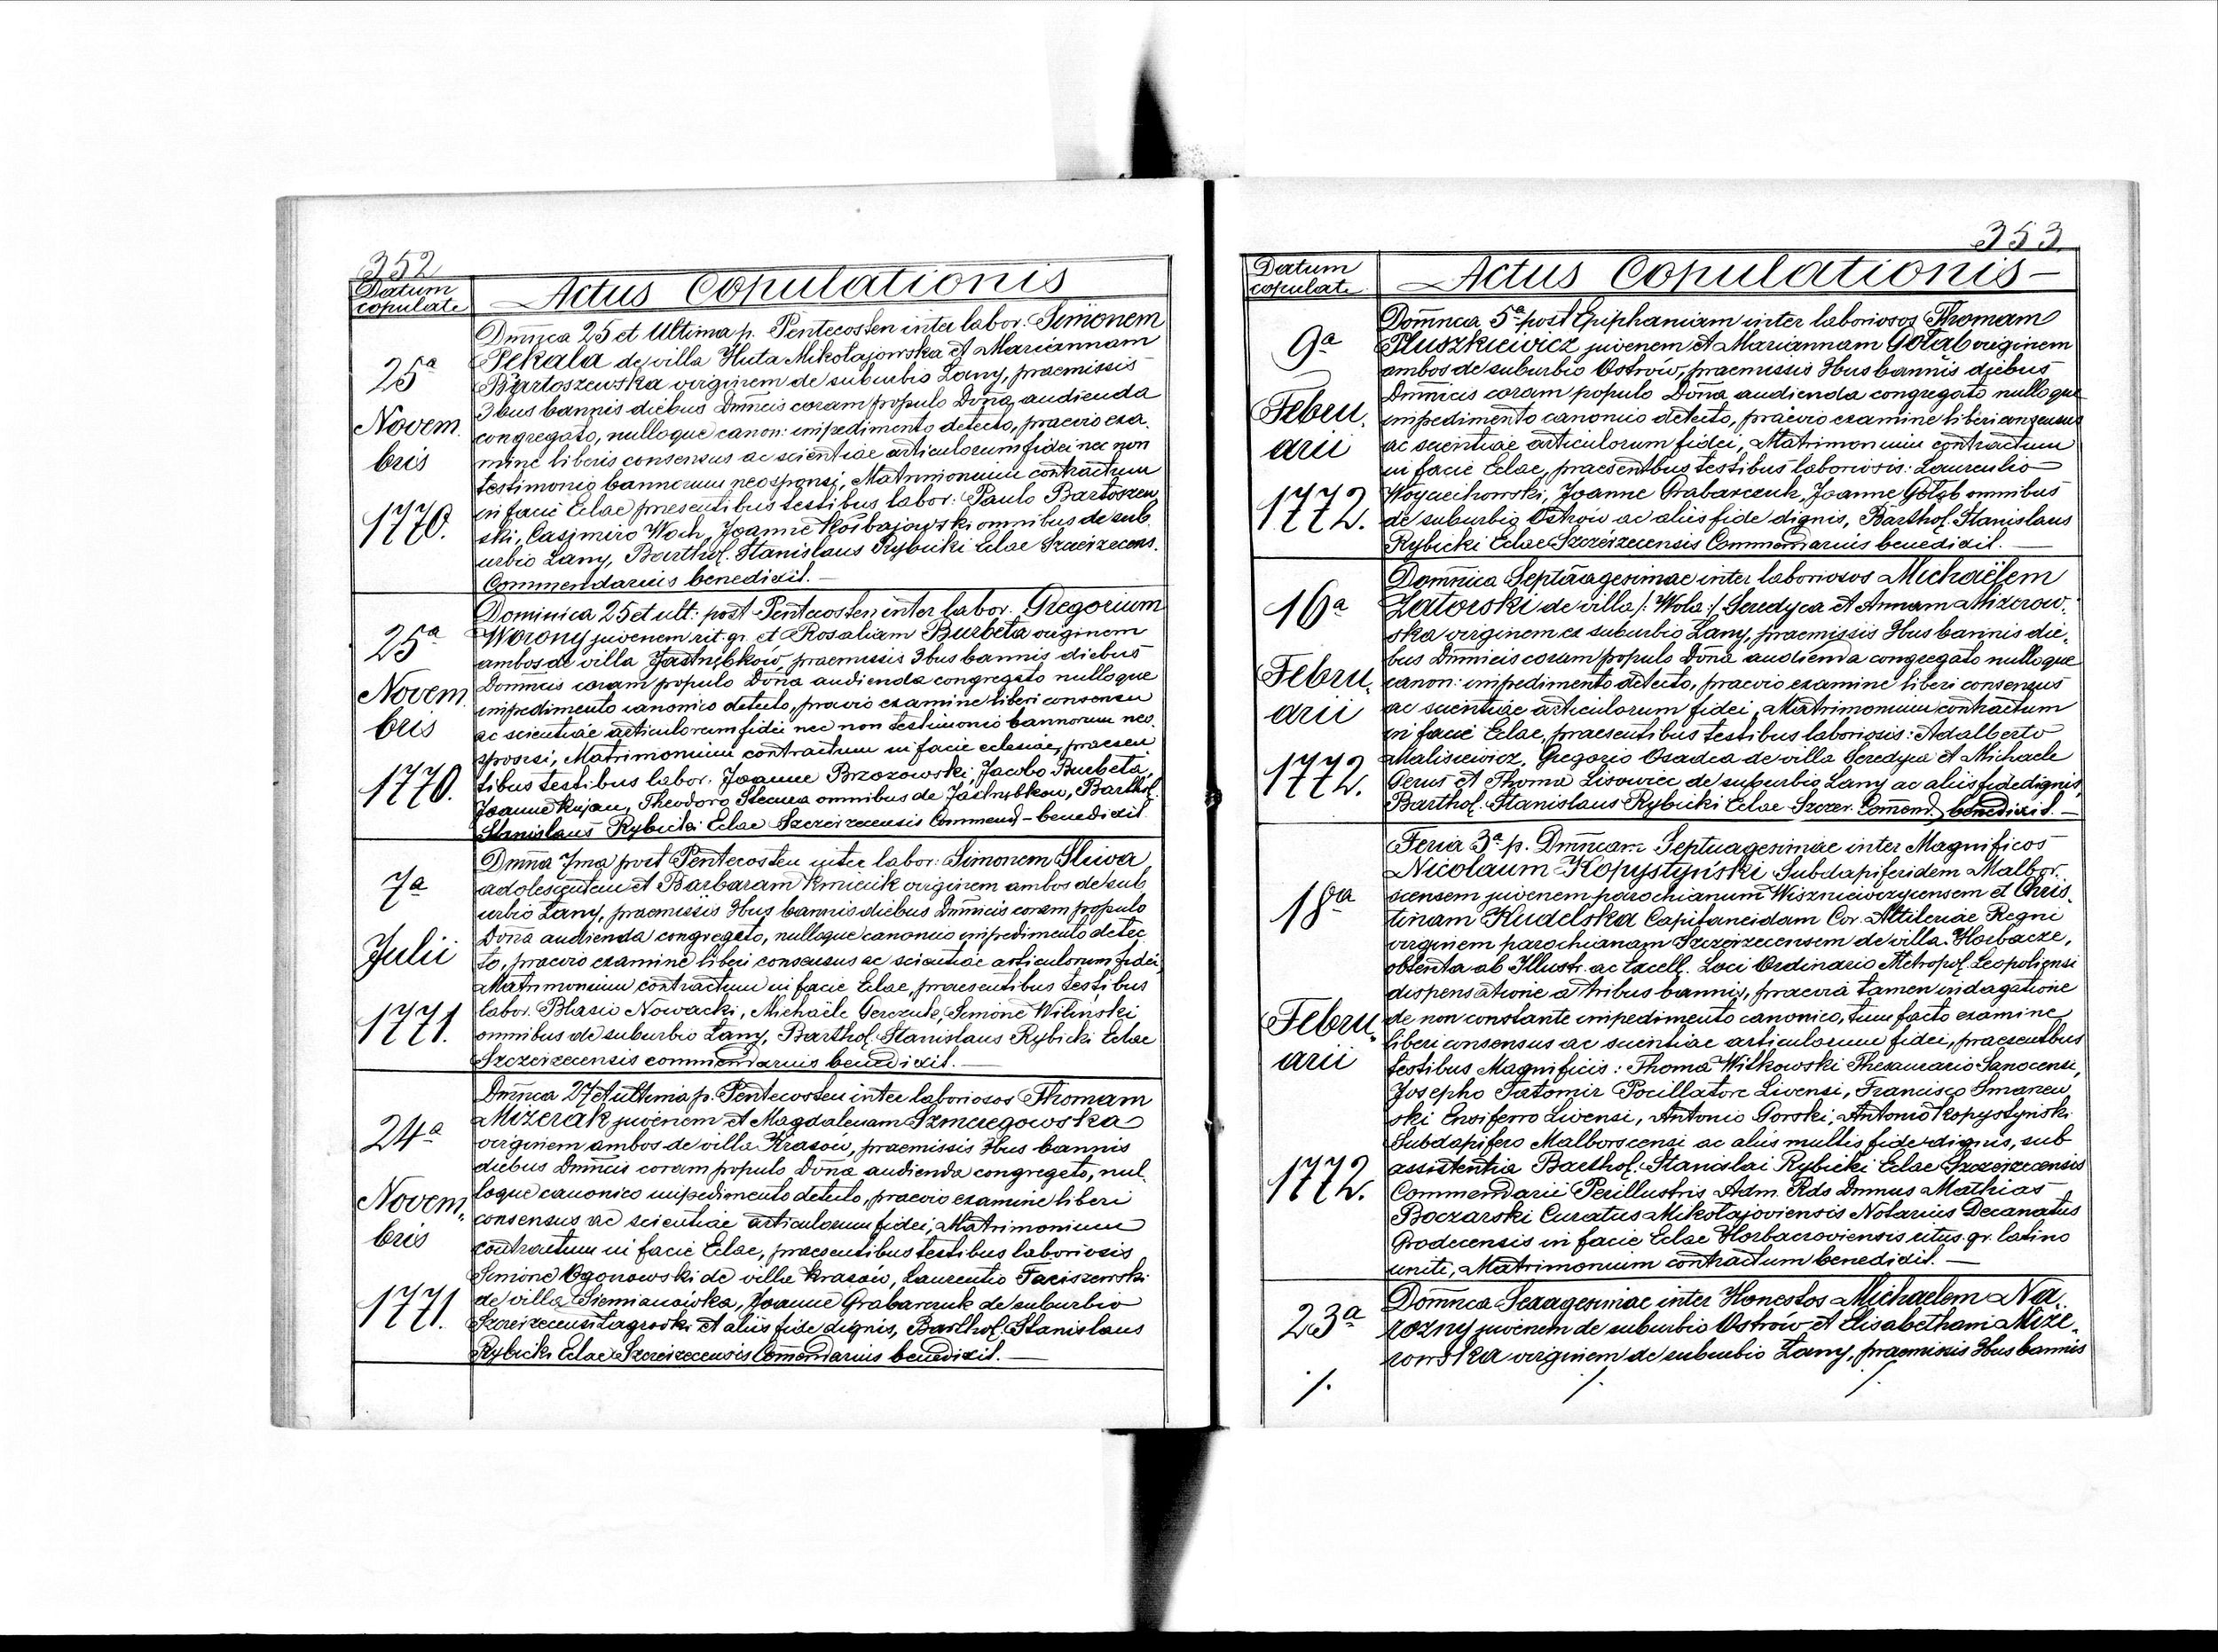 352
Datum
copulate
Actus Copulationis
25a
Novem.
bris
1770.
Dmnca 25 et Ultima p. Pentecosten inter labor. Simonem
Pekala de villa Huta Mikołajowska et Mariannam
Bartoszewska virginem de suburbio Łany, praemissis
3bus bannis diebus Dmnicis coram populo Dona audienda
congregato, nulloque canon: impedimento detecto, praevio exa.
mine liberis consensus ac scientiae articulorum fidei nec non
testimonio bannorum neosponsi, Matrimonium contractum
in facie Eclae praesentibus testibus labor. Paulo Bartoszew
ski, Casimiro Woch, Joanne Kośbajowski omnibus de sub.
urbio Łany, Barthol. Stanislaus Rybicki Eclae Szczeizecens.
Commendarius benedixit.
25a
Novem
bris
1770.
Dominica 25 et ult: post Pentecosten inter labor. Gregorium
Worony juvenem rit. gr. et Rosaliam Burbeta virginem
ambos de villa Jastrębków, praemissis 3bus bannis diebus
Domncis coram populo Dona audienda congregato nulloque
impedimento canonico detecto, praevio examine liberi consensu
ac scientiae articulorum fidei nec non testimonio bannorum neo
sponsi, Matrimonium contractum in facie eclesiae, praesen
tibus testibus labor. Joanne Brzozowski, Jacobo Burbeta,
Joanne Kujan, Theodoro Stecura omnibus de Jastrębkow, Barthol.
Stanislaus Rybicki Eclae Szczeizecensis Commend - benedixit
7a
Julii
1771.
Dmna 7ma post Pentecosten inter labor: Simonem Sliwa
adolescentem et Barbaram Kmiecik virginem ambos de sub
urbio Łany, praemissis 3bus bannis diebus Dmnicis coram populo
Dona audienda congregato, nulloque canonico impedimento detec
to, praevio examine liberi consensus ac scientiae articulorum fidei,
Matrimonium contractum in facie Eclae, praesentibus testibus
labor. Blasio Nowacki, Michaële Gerczuk, Simone Wiliński
omnibus de suburbio Łany, Barthol. Stanislaus Rybicki Eclae
Szczeizecensis commendarius benedixit.
24a
Novem,
bris
1771.
Dmnca 27 et ultima p. Pentecosten inter laboriosos Thomam
Mizerak juvenem et Magdalenam Szmeregowska
virginem ambos de villa Krasów, praemissis 3bus bannis
diebus Dmncis coram populo Dona audienda congregato, nul.
loque canonico impedimento detecto, praevio examine liberi
consensus ac scientiae articulorum fidei, Matrimonium
contractum in facie Eclae, praesentibus testibus laboriosis
Simone Ogonowski de villa Krasów, Laurentio Taciszewski
de villa Siemianówka, Joanne Grabarczuk de suburbio
Szczeizecensi Zagrodki et aliis fide dignis, Barthol. Stanislaus
Rybicki Eclae Szczeizecensis Commendarius benedixit.
353
Datum
copulate
Actus Copulationis
9a
Febru.
arii
1772.
Domnca 5a post Epiphaniam inter laboriosos Thomam
Pluszkiewicz juvenem et Mariannam Gołąb virginem
ambos de suburbio Ostrów, praemissis 3bus bannis diebus
Dmnicis coram populo Dona audienda congregato nulloque
impedimento canonico detecto, praevio examine liberi consensus
ac scientiae articulorum fidei, Matrimonium contractum
in facie Eclae, praesentbus testibus laboriosis: Laurentio
Woyciechowski, Joanne Grabarczuk, Joanne Gołąb omnibus
de suburbio Ostrów ac aliis fide dignis, Barthol. Stanislaus
Rybicki Eclae Szczeizecensis Commendarius benedixit.
16a
Febru.
arii
1772.
Domnica Septuagesimae inter laboriosos Michaëlem
Zatorski de villa /: Wola :/ Seredyca et Annam Mizerow.
ska virginem ex suburbio Łany, praemissis 3bus bannis die.
bus Dmnicis coram populo Dona audienda congregato nulloque
canon: impedimento detecto, praevio examine liberi consensus
ac scientiae articulorum fidei, Matrimonium contractum
in facie Eclae, praesentibus testibus laboriosis: Adalberto
Malisiewicz, Gregorio Osadca de villa Seredyca et Michaele
Gerus et Thoma Lisowiec de suburbio Łany ac aliis fide dignis,
Barthol. Stanislaus Rybicki Eclae Szczer. Comend. benedixit.
18a
Febru.
arii
1772.
Feria 3a p. Dmnicam Septuagesimae inter Magnificos
Nicolaum Kopystyński Subdapiferidem Malbor.
scensem juvenem parochianum Wiszniewczycensem et Chris.
tinam Kudelska Capitaneidam Cor. Altileriae Regni
virginem parochianam Szczeizecensem de villa Horbacze,
obtenta ab Illustr. ac Excell. Loci Ordinario Metropol. Leopoliensi
dispensatione a tribus bannis, praevia tamen indagatione
de non constante impedimento canonico, tum facto examine
liberi consensus ac scientiae articulorum fidei, praesentbus
testibus Magnificis: Thoma Witkowski Thesaurario Sanocensi,
Josepho Tatomir Pocillatore Livensi, Francisco Smarzew
ski Ensifero Livensi, Antonio Gorski, Antonio Kopystyński
Subdapifero Malborscensi ac aliis multis fide dignis, sub
assistentia Barthol. Stanislai Rybicki Eclae Szczeizecensis
Commendarii Perillustris Adm. Rds Dmnus Mathias
Boczarski Curatus Mikołajoviensis Notarius Decanatus
Grodecensis in facie Eclae Horbaczoviensis ritus gr. latino
uniti, Matrimonium contractum benedixit.
23a
Domnca Sexagesimae inter Honestos Michaelem Na.
rozny juvenem de suburbio Ostrów et Elisabetham Mize.
rowska virginem de suburbio Łany, praemissis 3bus bannis
/. /. /.